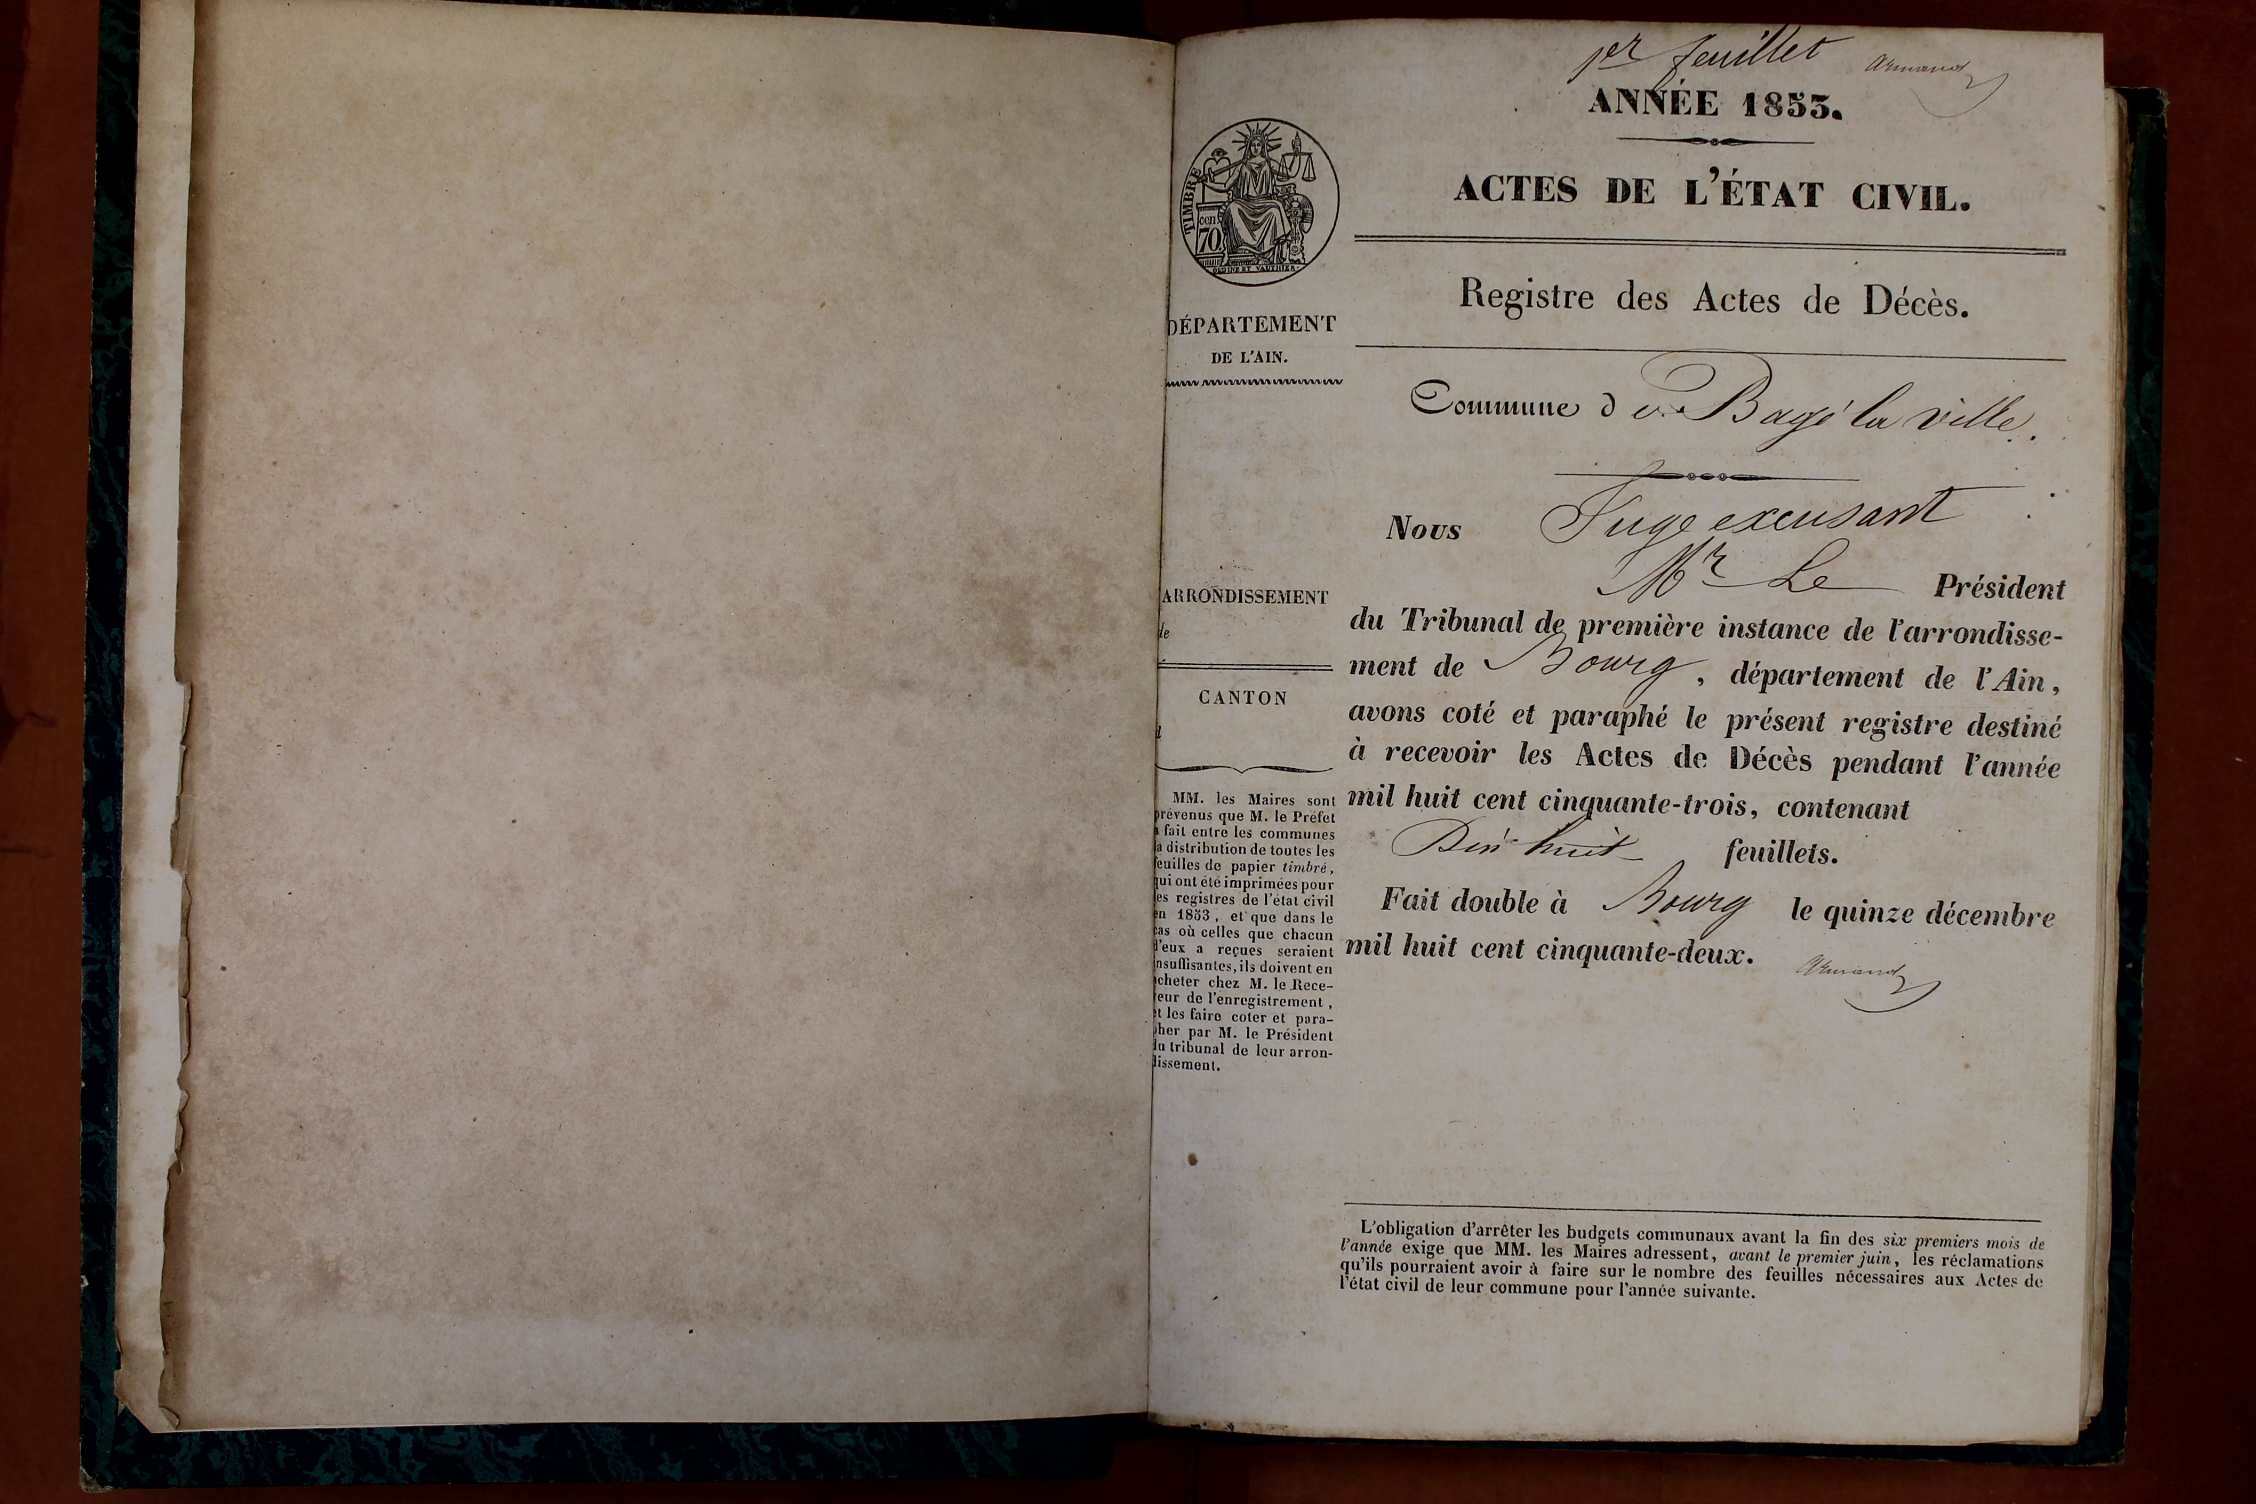 1er feuillet Armand
ANNÉE 1853.
ACTES DE L'ÉTAT CIVIL.
Registre des Actes de Décès.
Commune de Bagé la ville.
Nous Juge excusant
Mr Le Président
du Tribunal de première instance de l'arrondisse-
ment de Bourg, département de l'Ain,
avons coté et paraphé le présent registre destiné
à recevoir les Actes de Décès pendant l'année
mil huit cent cinquante-trois, contenant
Dix huit feuillets.
Fait double à Bourg le quinze décembre
mil huit cent cinquante-deux.
Armand
L'obligation d'arrêter les budgets communaux avant la fin des six premiers mois de
l'année exige que MM. les Maires adressent, avant le premier juin, les réclamations
qu'ils pourraient avoir à faire sur le nombre des feuilles nécessaires aux Actes de
l'état civil de leur commune pour l'année suivante.
TIMBRE
cen
70
DÉPARTEMENT
DE L'AIN.
ARRONDISSEMENT
de
CANTON
d
MM. les Maires sont
prévenus que M. le Préfet
a fait entre les communes
la distribution de toutes les
feuilles de papier timbré,
qui ont été imprimées pour
les registres de l'état civil
en 1853, et que dans le
cas où celles que chacun
d'eux a reçues seraient
insuffisantes, ils doivent en
acheter chez M. le Rece-
veur de l'enregistrement,
et les faire coter et para-
pher par M. le Président
du tribunal de leur arron-
dissement.